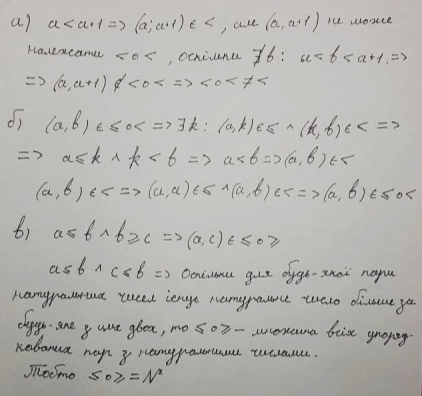 а) a < a+1 => (a; a+1) ∈ <, але (a, a+1) не може
належати < ∘ <, оскільки ∄b: a < b < a+1. =>
=> (a, a+1) ∉ < ∘ < => < ∘ < ≠ <
б) (a, b) ∈ ≤ ∘ < => ∃k: (a, k) ∈ ≤ ∧ (k, b) ∈ < =>
=> a ≤ k ∧ k < b => a < b => (a, b) ∈ <
(a, b) ∈ < => (a, a) ∈ ≤ ∧ (a, b) ∈ < => (a, b) ∈ ≤ ∘ <
в) a ≤ b ∧ b ≥ c => (a, c) ∈ ≤ ∘ ≥
a ≤ b ∧ c ≤ b => Оскільки для будь-якої пари
натуральних чисел існує натуральне число більше за
будь-яке з них двох, то ≤ ∘ ≥ – множина всіх упоряд-
кованих пар з натуральними числами.
Тобто ≤ ∘ ≥ = N²